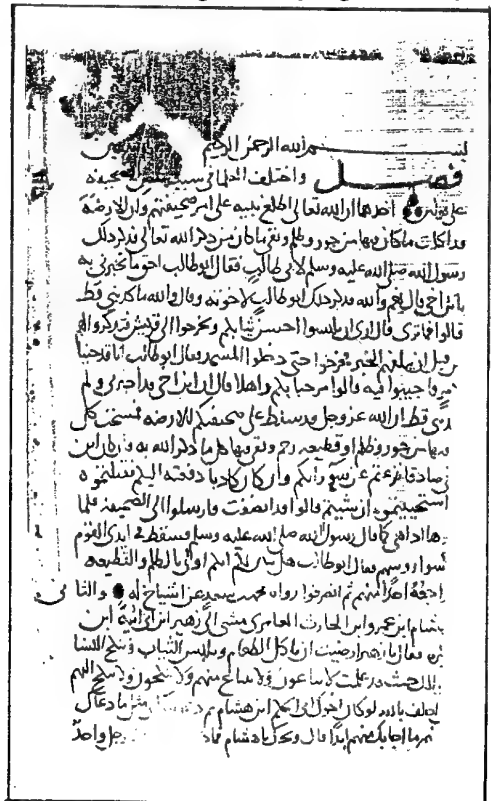 بسم الله الرحمن الرحيم
فصل واختلف العلماء في سبب نقض الصحيفة
على قولين احدهما ان الله تعالى اطلع نبيه على امر صحيفتهم وان الارضة
قد اكلت ما كان فيها من جور وظلم وبقي ما كان من ذكر الله تعالى فذكر ذلك
رسول الله صلى الله عليه وسلم لابي طالب فقال ابو طالب احق ما تخبرني به
يا بن اخي قال نعم والله فذكر ذلك ابو طالب لاخوته وقال والله ما كذبني قط
قالوا فما ترى قال ارى ان تلبسوا احسن ثيابكم وتخرجوا الى قريش فتذكروا لهم
قبل ان يبلغهم الخبر فخرجوا حتى دخلوا المسجد فقال ابو طالب انا قد جينا
فاجيبوا فيه قالوا مرحبا بكم واهلا قال ان ابن اخي قد اخبرني ولم
قط ان الله عز وجل قد سلط على صحيفتكم الارضة فمسحت كل
فيها من جور وظلم او قطيعة رحم وبقي فيها كل ما ذكر الله به فان كان ابن
صادقا نزعتم عن سوء رأيكم وان كان كاذبا دفعته اليكم فقتلتموه
استحييتموه ان شيتم قالوا قد انصفت فارسلوا الى الصحيفة فلما
هي كما قال رسول الله صلى الله عليه وسلم فسقط في ايدي القوم
رؤسهم فقال ابو طالب هل انكم اولى بالظلم والقطيعة
احد منهم ثم انصرفوا رواه محمد بن سعد عن اشياخ له والثا
ني
هشام ابن عمرو ابن الحارث العامري مشى الى زهير ابن ابي امية ابن
فقال يا زهير ارضيت ان تاكل الطعام وتلبس الثياب وتنكح النسا
حيث قد علمت لا يباعون ولا يبتاع منهم ولا ينكحون ولا ينكح اليهم
احلف بالله لو كان اخوال ابي الحكم ابن هشام ثم مثل ما دعاك
ما اجابك منهم ابدا قال ويحك يا هشام فماذا رجل واحد